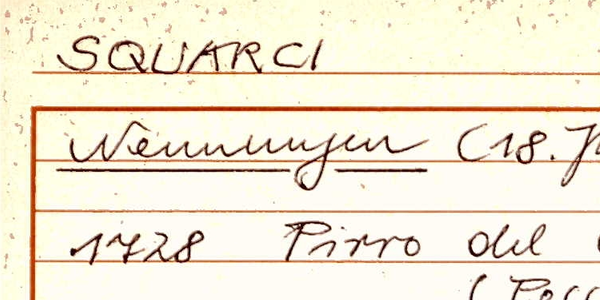 SQUARCI
Nennungen (18.
1728 Pirro del